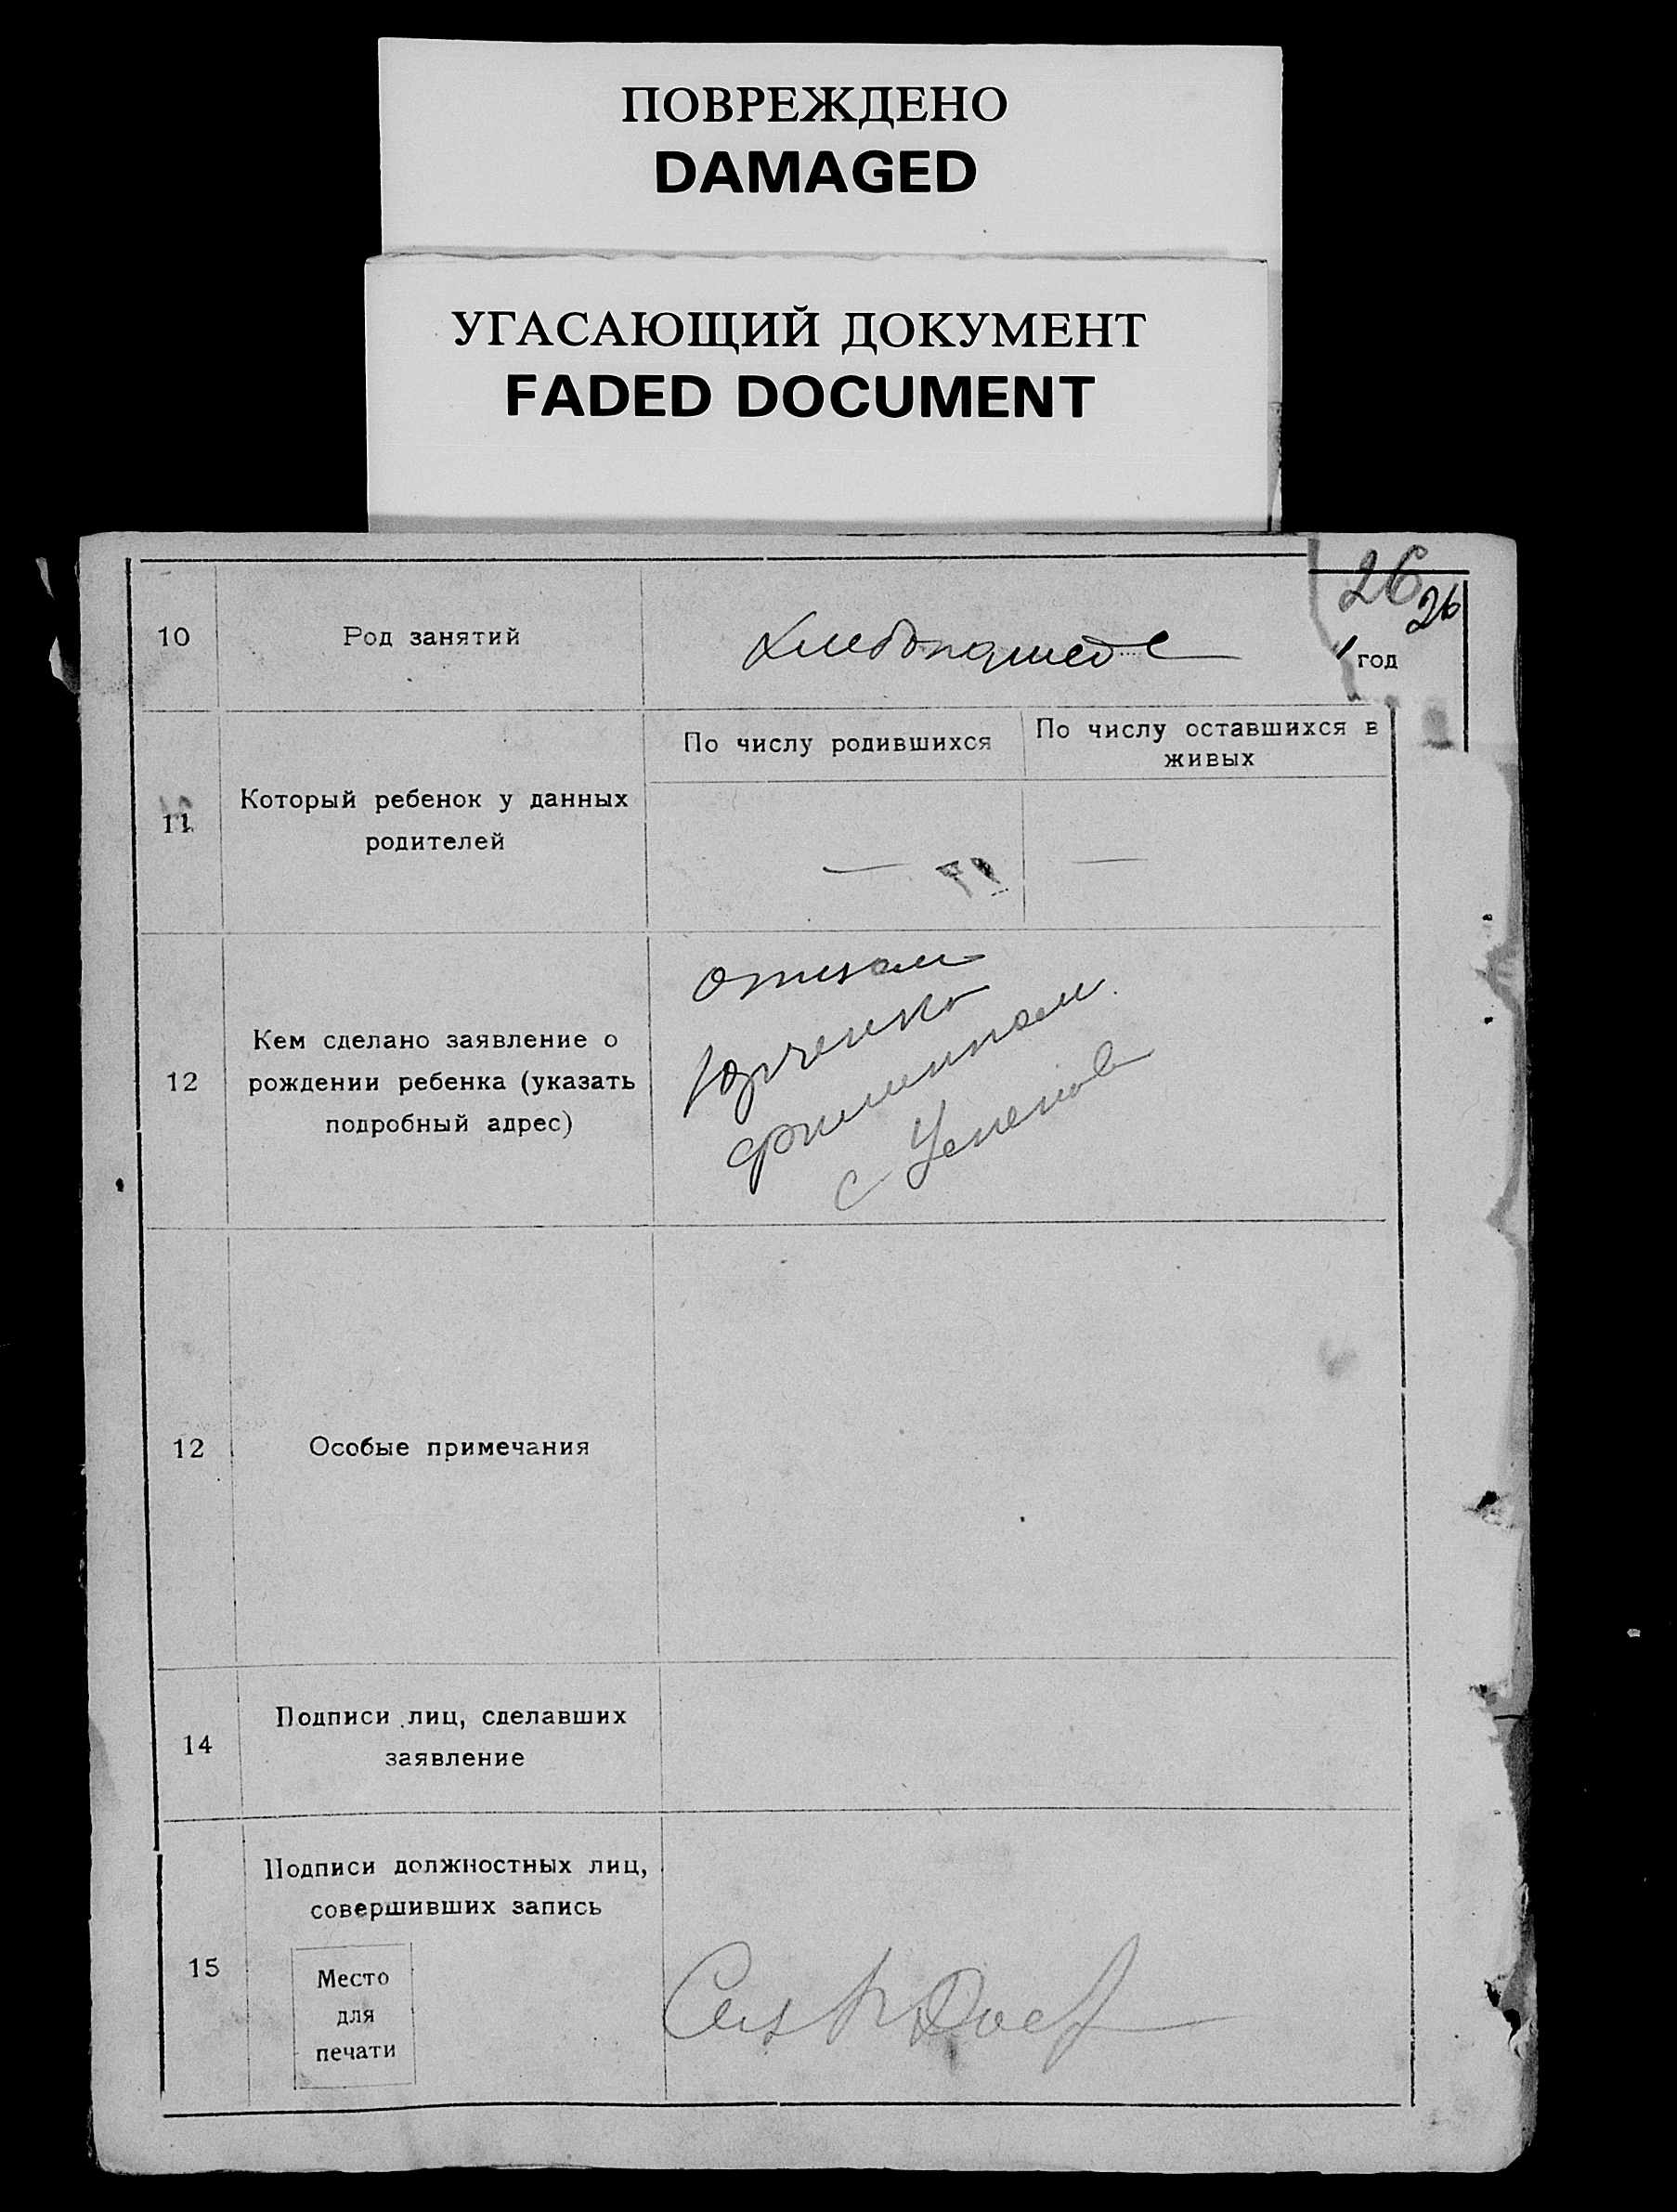 ПОВРЕЖДЕНО
DAMAGED
УГАСАЮЩИЙ ДОКУМЕНТ
FADED DOCUMENT
26
26
10
Род занятий
год
11
Который ребенок у данных
родителей
По числу родившихся
По числу оставшихся в
живых
—
—
12
Кем сделано заявление о
рождении ребенка (указать
подробный адрес)
отцом
Юрченко
с
12
Особые примечания
14
Подписи лиц, сделавших
заявление
15
Подписи должностных лиц,
совершивших запись
Место
для
печати